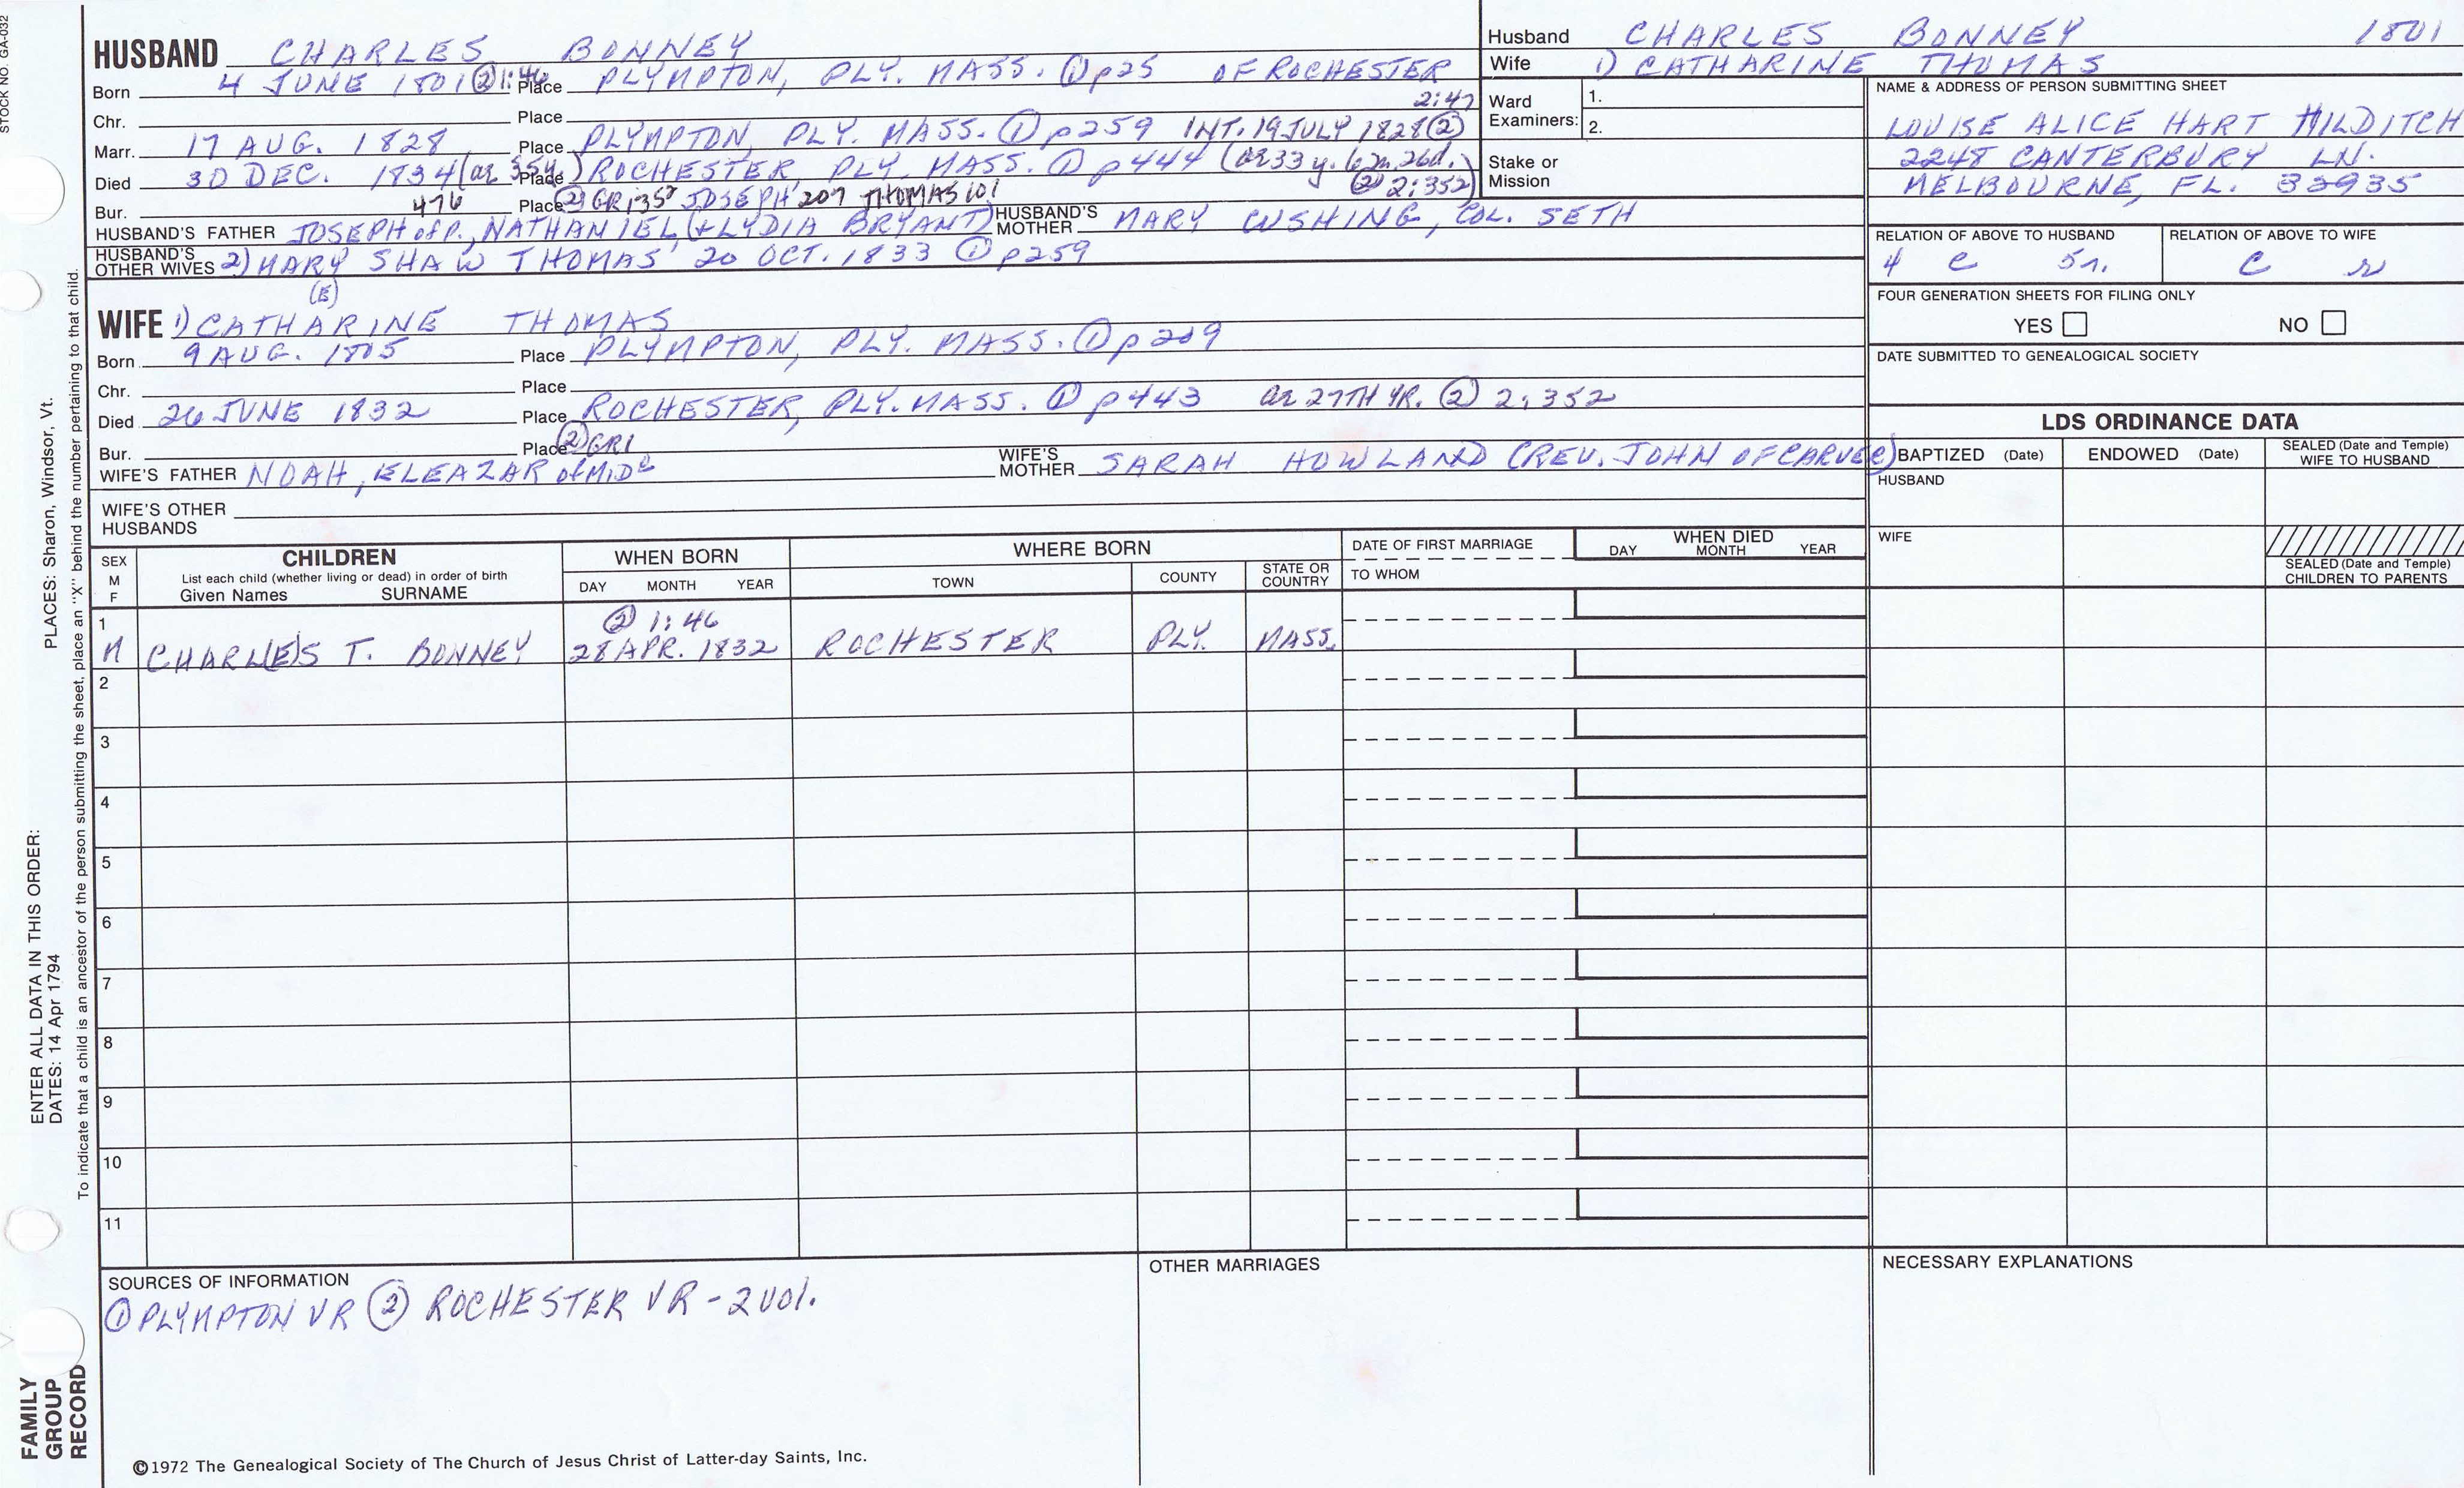 STOCK NO. GA-032
HUSBAND CHARLES BONNEY
Born 4 JUNE 1801 ② 1:46 Place PLYMPTON, PLY. MASS. ① p25 OF ROCHESTER
Chr. Place 2:47
Marr. 17 AUG. 1828 Place PLYMPTON, PLY. MASS. ① p259 INT. 19 JULY 1828 ②
Died 30 DEC. 1834 (ae 35y.) Place ROCHESTER, PLY. MASS. ① p444 (ae 33 y. 6m. 26d.
② 2:352)
Bur. 476 Place ② GR135 JOSEPH 207 THOMAS 101
HUSBAND'S FATHER JOSEPH of P., NATHANIEL (+ LYDIA BRYANT) HUSBAND'S MOTHER MARY CUSHING, COL. SETH
HUSBAND'S OTHER WIVES 2) MARY SHAW THOMAS 20 OCT. 1833 ① p259
(E)
WIFE 1) CATHARINE THOMAS
Born 9 AUG. 1805 Place PLYMPTON, PLY. MASS. ① p209
Chr. Place
Died 26 JUNE 1832 Place ROCHESTER, PLY. MASS. ① p443 ae 27TH YR. ② 2:352
Bur. Place ② GR1
WIFE'S FATHER NOAH, ELEAZAR of MIDᵉ WIFE'S MOTHER SARAH HOWLAND (REV. JOHN OF CARVER)
WIFE'S OTHER HUSBANDS
Husband CHARLES BONNEY 1801
Wife 1) CATHARINE THOMAS
Ward Examiners: 1.
2.
Stake or Mission
NAME & ADDRESS OF PERSON SUBMITTING SHEET
LOUISE ALICE HART HILDITCH
2248 CANTERBURY LN.
MELBOURNE, FL. 32935
RELATION OF ABOVE TO HUSBAND RELATION OF ABOVE TO WIFE
4 C 5r. C r
FOUR GENERATION SHEETS FOR FILING ONLY
YES NO
DATE SUBMITTED TO GENEALOGICAL SOCIETY
LDS ORDINANCE DATA
BAPTIZED (Date) ENDOWED (Date) SEALED (Date and Temple) WIFE TO HUSBAND
HUSBAND
WIFE
SEALED (Date and Temple) CHILDREN TO PARENTS
SEX M F CHILDREN WHEN BORN WHERE BORN DATE OF FIRST MARRIAGE WHEN DIED
List each child (whether living or dead) in order of birth
Given Names SURNAME DAY MONTH YEAR TOWN COUNTY STATE OR COUNTRY TO WHOM DAY MONTH YEAR
1 ② 1:46
M CHARL(E)S T. BONNEY 28 APR. 1832 ROCHESTER PLY. MASS.
2
3
4
5
6
7
8
9
10
11
SOURCES OF INFORMATION OTHER MARRIAGES NECESSARY EXPLANATIONS
① PLYMPTON VR ② ROCHESTER VR - 2 vol.
©1972 The Genealogical Society of The Church of Jesus Christ of Latter-day Saints, Inc.
FAMILY
GROUP
RECORD
ENTER ALL DATA IN THIS ORDER: PLACES: Sharon, Windsor, Vt.
DATES: 14 Apr 1794
To indicate that a child is an ancestor of the person submitting the sheet, place an "X" behind the number pertaining to that child.